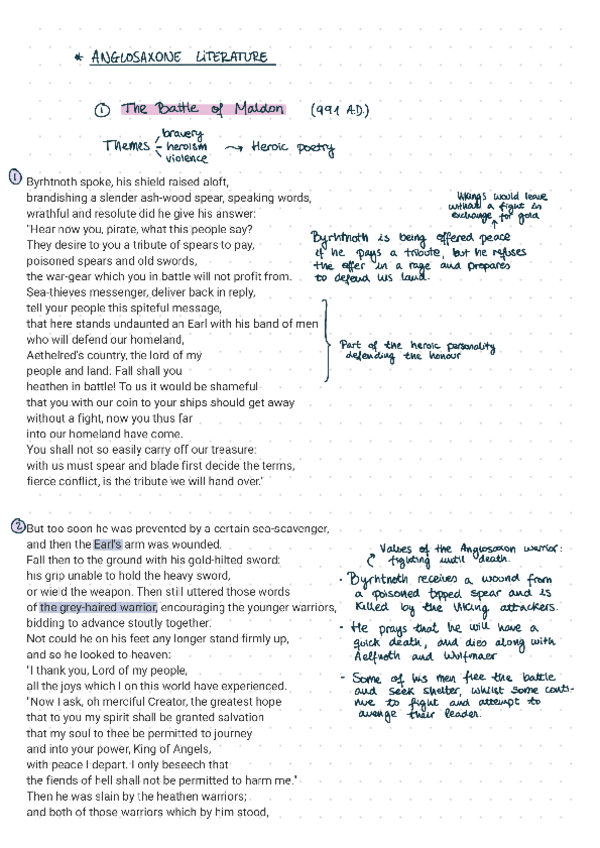 * ANGLOSAXONE LITERATURE
1 The Battle of Maldon (991 A.D.)
bravery
Themes - heroism → Heroic poetry
violence
1
Byrhtnoth spoke, his shield raised aloft,
brandishing a slender ash-wood spear, speaking words,
wrathful and resolute did he give his answer:
"Hear now you, pirate, what this people say?
They desire to you a tribute of spears to pay,
poisoned spears and old swords,
the war-gear which you in battle will not profit from.
Sea-thieves messenger, deliver back in reply,
tell your people this spiteful message,
that here stands undaunted an Earl with his band of men
who will defend our homeland,
Aethelred's country, the lord of my
people and land. Fall shall you
heathen in battle! To us it would be shameful
that you with our coin to your ships should get away
without a fight, now you thus far
into our homeland have come.
You shall not so easily carry off our treasure:
with us must spear and blade first decide the terms,
fierce conflict, is the tribute we will hand over."
Vikings would leave
without a fight in
exchange for gold
Byrhtnoth is being offered peace
if he pays a tribute, but he refuses
the offer in a rage and prepares
to defend his land.
Part of the heroic personality
defending the honour
2
But too soon he was prevented by a certain sea-scavenger,
and then the Earl's arm was wounded.
Fall then to the ground with his gold-hilted sword:
his grip unable to hold the heavy sword,
or wield the weapon. Then still uttered those words
of the grey-haired warrior, encouraging the younger warriors,
bidding to advance stoutly together.
Not could he on his feet any longer stand firmly up,
and so he looked to heaven:
"I thank you, Lord of my people,
all the joys which I on this world have experienced.
"Now I ask, oh merciful Creator, the greatest hope
that to you my spirit shall be granted salvation
that my soul to thee be permitted to journey
and into your power, King of Angels,
with peace I depart. I only beseech that
the fiends of hell shall not be permitted to harm me."
Then he was slain by the heathen warriors;
and both of those warriors which by him stood,
Values of the Anglosaxon warrior:
fighting until death.
- Byrhtnoth receives a wound from
a poisoned topped spear and is
killed by the Viking attackers.
- He prays that he will have a
quick death, and dies along with
Aelfnoth and Wulfmaer
- Some of his men flee the battle
and seek shelter, whilst some conti-
nue to fight and attempt to
avenge their leader.